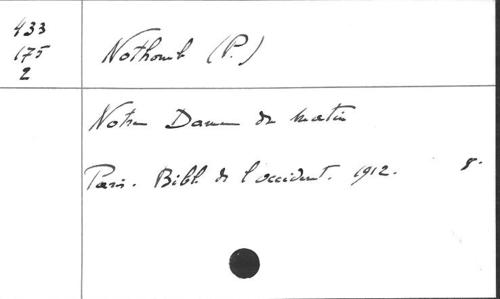 433
175
2
Nothomb (P.)
Notre Dame du Matin
Paris. Bibl. de l'occident. 1912. 8.